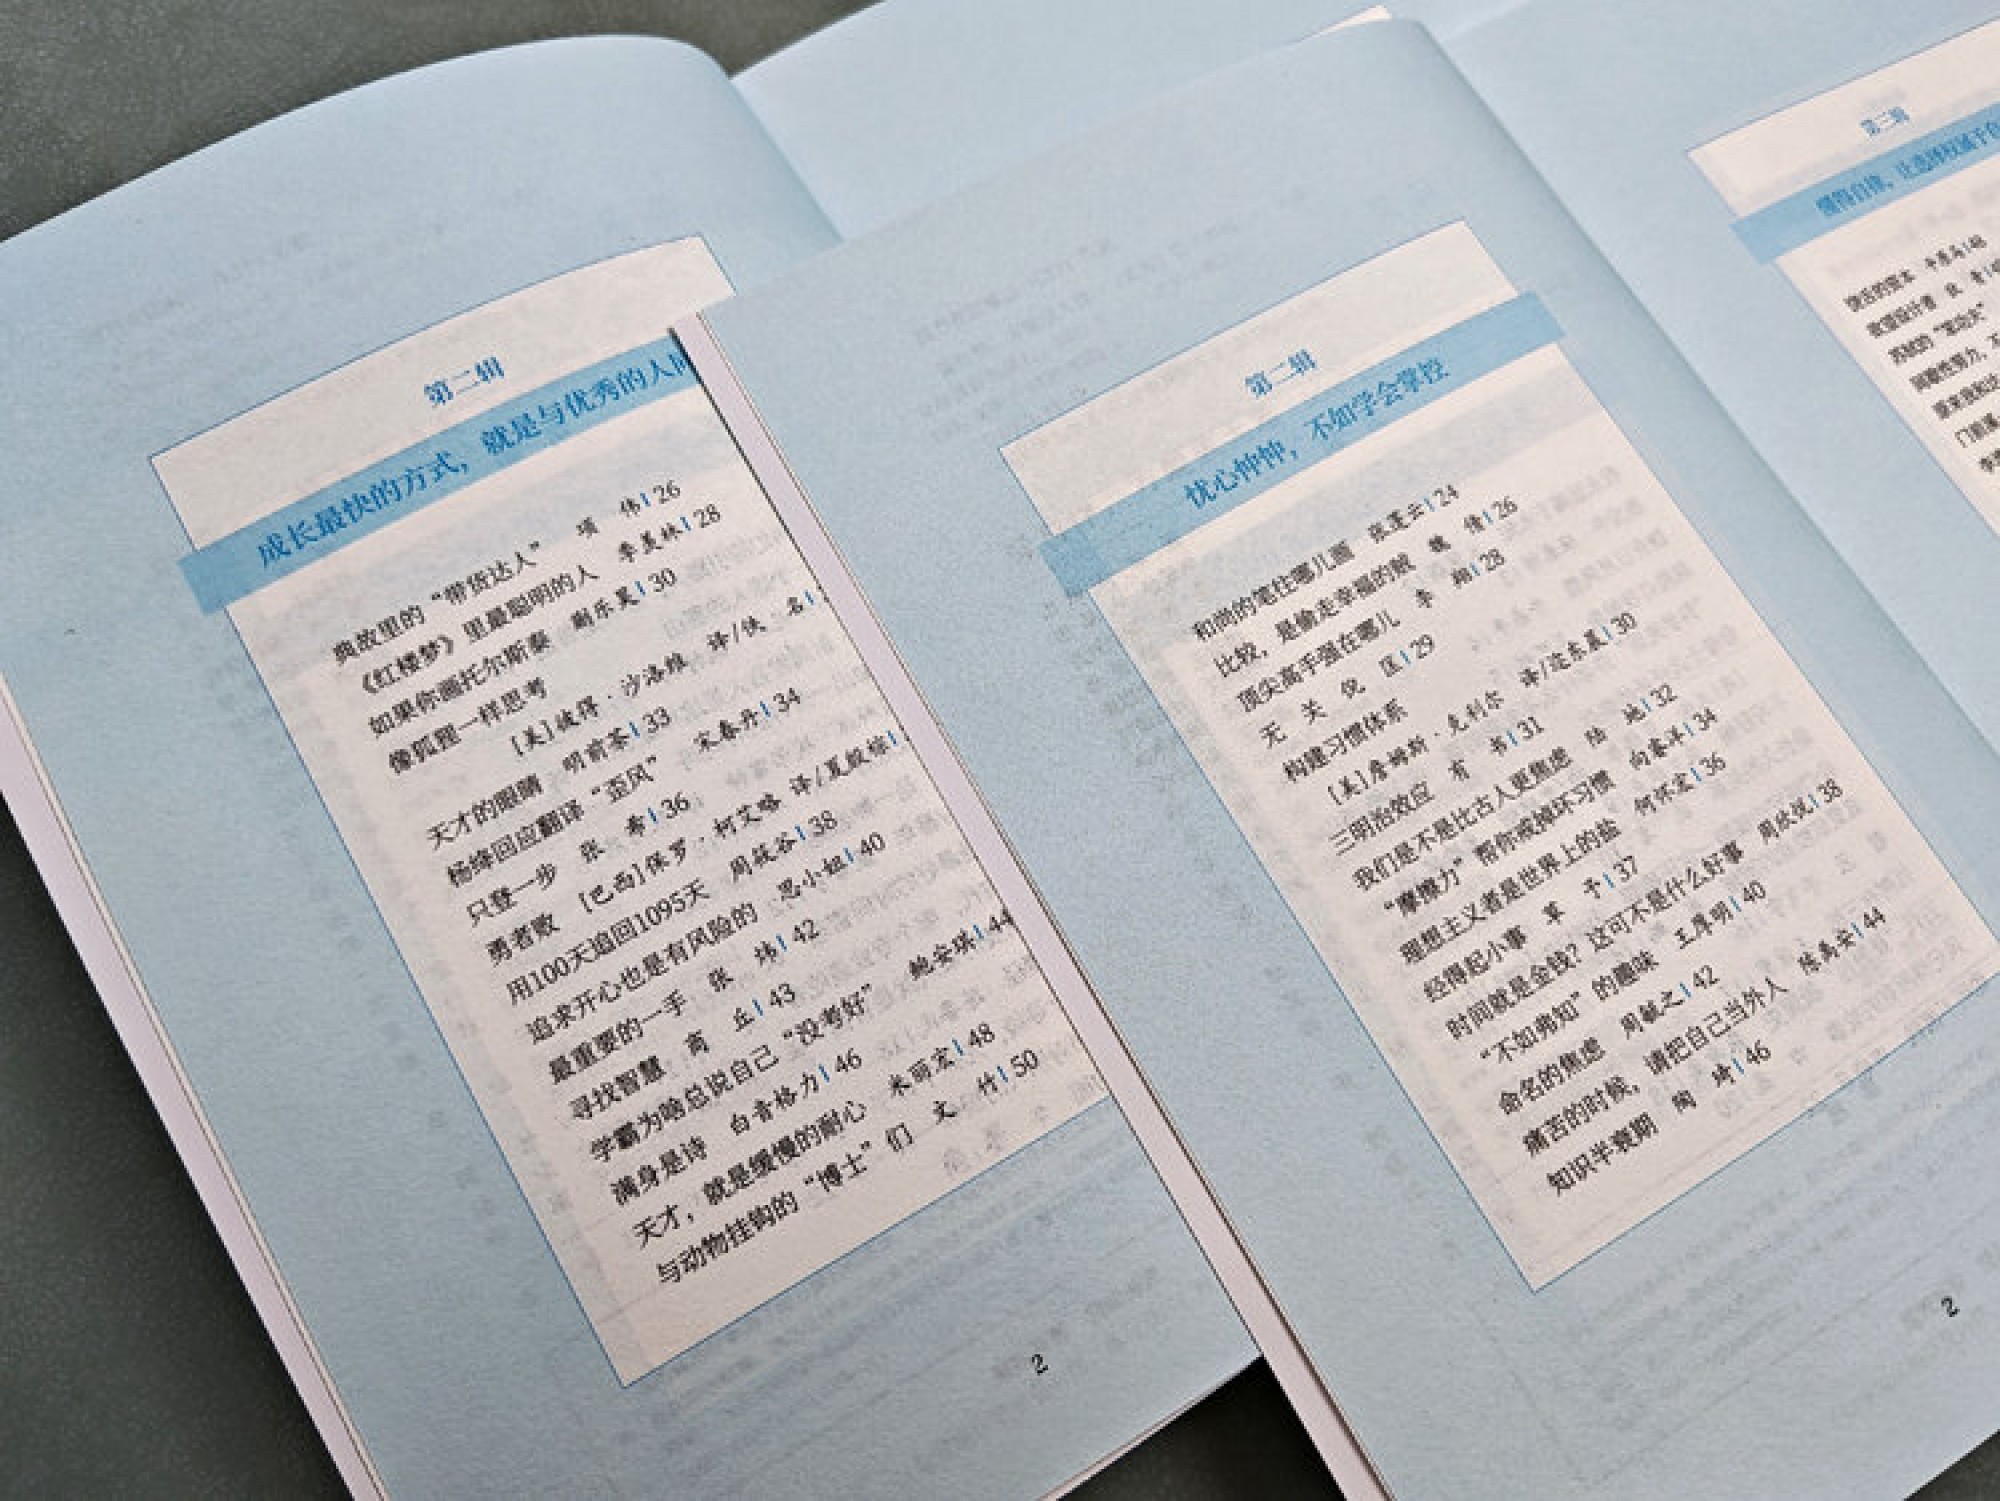 第二辑
成长最快的方式，就是与优秀的人
典故里的“带货达人” 项 伟 26
《红楼梦》里最聪明的人 李美林 28
如果你画托尔斯泰 谢乐昊 30
像狐狸一样思考
[美]彼得·沙洛维 译/佚 名
天才的眼睛 明前茶 33
杨绛回应翻译“歪风” 宋春丹 34
只登一步 张 希 36
勇者败 [巴西]保罗·柯艾略 译/夏殷棕
用100天追回1095天 周筱谷 38
追求开心也是有风险的 思小妞 40
最重要的一手 张 炜 42
寻找智慧 商 丘 43
学霸为啥总说自己“没考好” 鲍安琪 44
满身是诗 白音格力 46
天才，就是缓慢的耐心 朱丽宏 48
与动物挂钩的“博士”们 文 竹 50
2
第二辑
忧心忡忡，不如学会掌控
和尚的笔往哪儿画 张蓬云 24
比较，是偷走幸福的贼 魏 倩 26
顶尖高手强在哪儿 李 翔 28
无 关 倪 匡 29
构建习惯体系
[美]詹姆斯·克利尔 译/迩东晨 30
三明治效应 有 书 31
我们是不是比古人更焦虑 陆 地 32
“摩擦力”帮你戒掉坏习惯 向春洋 34
理想主义者是世界上的盐 何怀宏 36
经得起小事 草 予 37
时间就是金钱？这可不是什么好事 周欣悦 38
“不如弗知”的趣味 王厚明 40
命名的焦虑 周毓之 42
痛苦的时候，请把自己当外人 陈禹安 44
知识半衰期 陶 琦 46
2
第三辑
懂得自律，让选择权属于